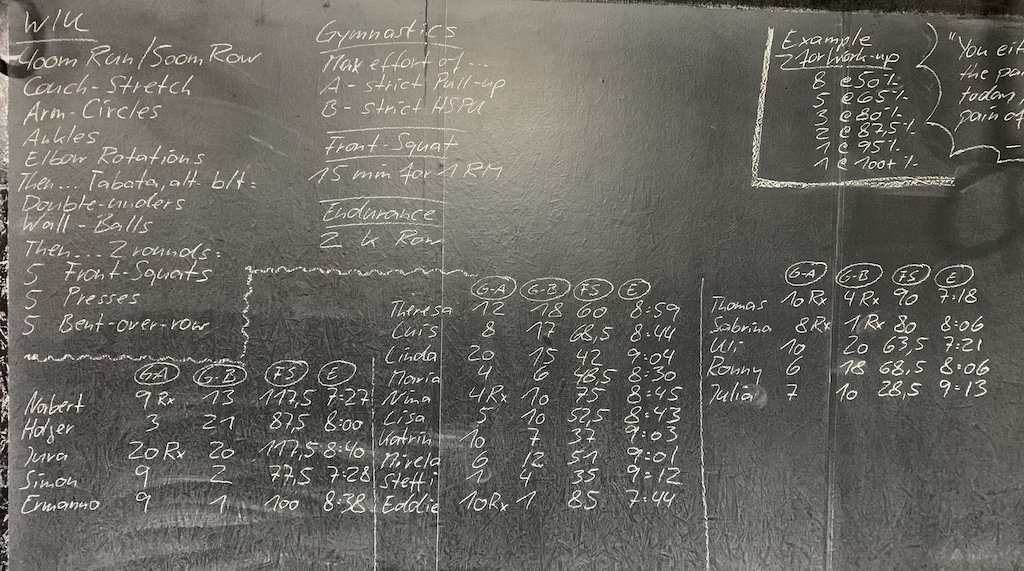 W/U
400m Run/500m Row
Couch-Stretch
Arm-Circles
Ankles
Elbow Rotations
Then... Tabata, alt. b/t:
Double-unders
Wall-Balls
Then... 2 rounds:
5 Front-Squats
5 Presses
5 Bent-over-row
Gymnastics
Max effort of...
A - strict Pull-up
B - strict HSPU
Front-Squat
15 min for 1 RM
Endurance
2 k Row
Example
for Work-up
8 @ 50%
5 @ 65%
3 @ 80%
2 @ 87,5%
1 @ 95%
1 @ 100+%
"You eit
the pa
today,
pain of
G-A G-B FS E
Norbert 9 Rx 13 117,5 7:27
Holger 3 21 87,5 8:00
Jura 20 Rx 20 117,5 8:40
Simon 9 2 77,5 7:28
Ermanno 9 1 100 8:38
G-A G-B FS E
Theresa 12 18 60 8:59
Luis 8 17 68,5 8:44
Linda 20 15 42 9:04
Maria 4 6 48,5 8:30
Nima 4Rx 10 75 8:45
Lisa 5 10 52,5 8:43
Katrin 10 7 37 9:03
Mirela 6 12 51 9:01
Steffi 1 4 35 9:12
Eddie 10Rx 1 85 7:44
G-A G-B FS E
Thomas 10 Rx 4 Rx 90 7:18
Sabrina 8 Rx 1 Rx 80 8:06
Uli 10 20 63,5 7:21
Ronny 6 18 68,5 8:06
Julia 7 10 28,5 9:13